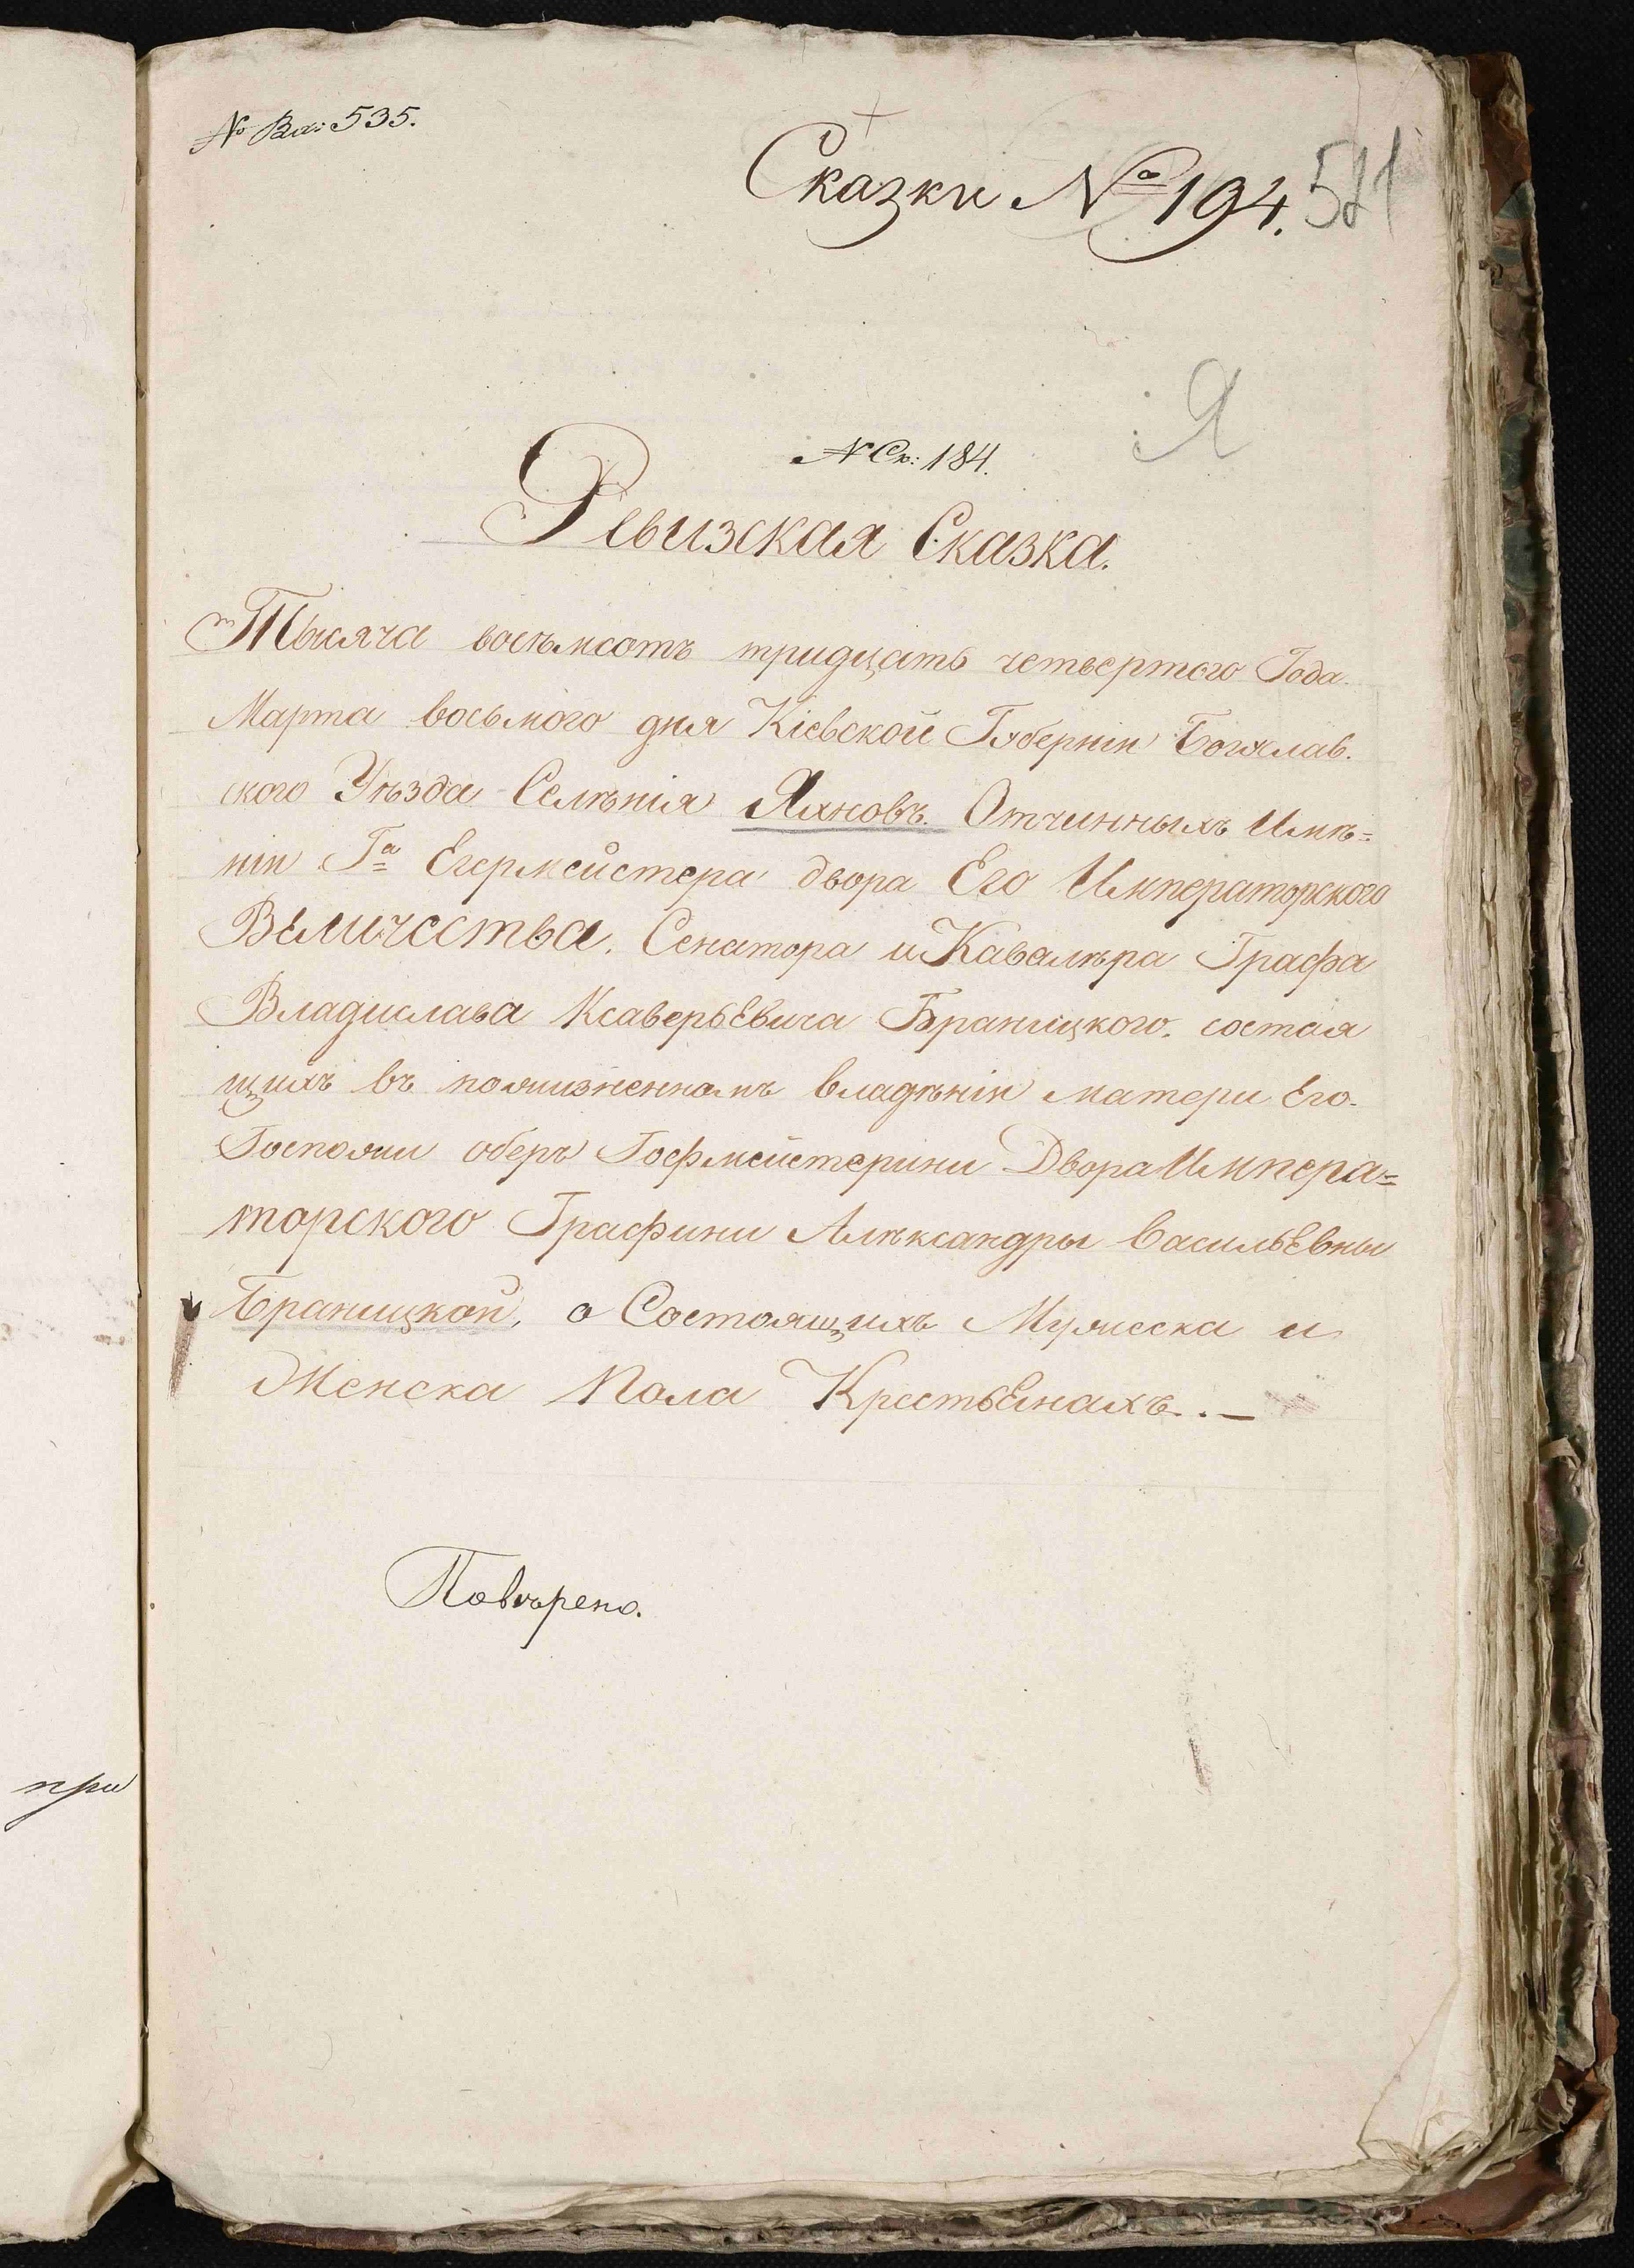 № Вх: 535.
Сказки № 194.
521
Я
№ Ск: 184.
Ревизская Сказка.
Тысяча восѣмсотъ тридцать четвертого Года.
Марта восьмого дня Кіевской Губерніи Богуслав.
ского Уѣзда Селѣнія Яхновъ. Отчинныхъ Имѣ=
ніи Га Егермейстера двора Его Императорского
Величества. Сенатора и Кавалѣра Графа
Владислава КсаверьЕвича Браницкого. состоя
щихъ въ пожизненномъ владѣніи матери Его.
Госпожи оберъ Гофмейстерини Двора Импера=
торского Графини Алѣксандры ВасильЕвны
Браницкой, о Состоящихъ Мужеска и
Женска Пола Крестьянахъ. . —
Повѣрено.
при